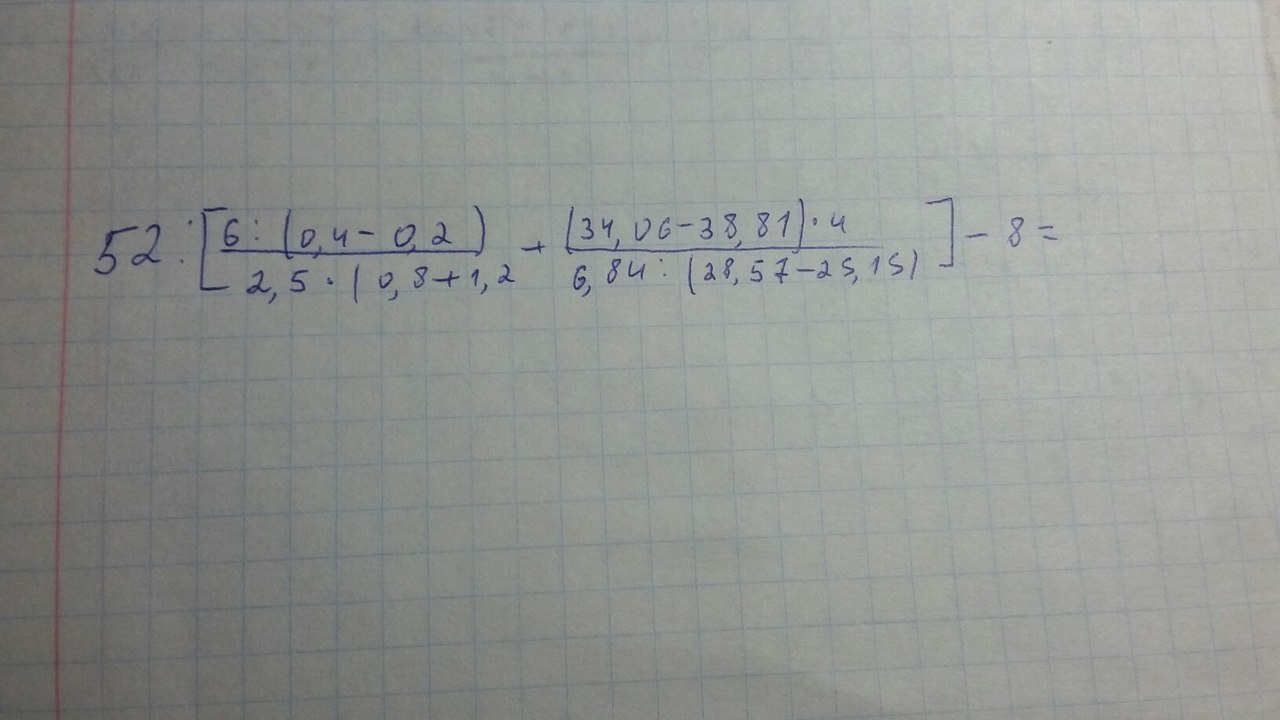 52:[6:(0,4-0,2) + (34,06-38,81)·4]-8=
2,5·(0,8+1,2 6,84:(28,57-25,15)